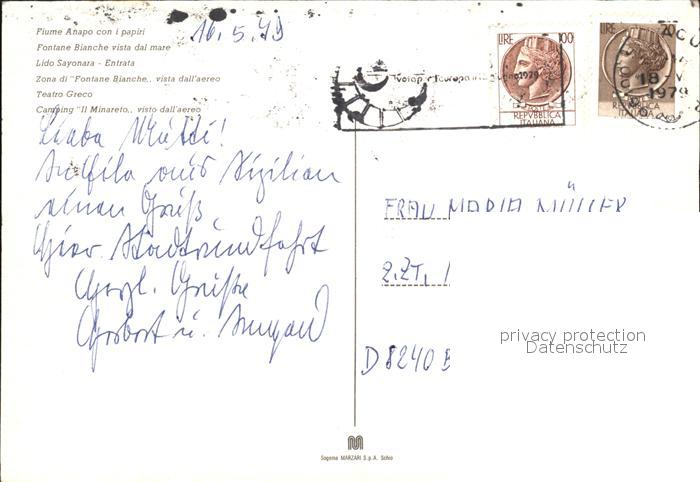 16.5.79
Fiume Anapo con i papiri
Fontane Bianche vista dal mare
Lido Sayonara - Entrata
Zona di "Fontane Bianche,, vista dall'aereo
Teatro Greco
Camping "Il Minareto,, visto dall'aereo
Liebe Mutti!
aus Sizilien
einen Gruß
Hier Stadtrundfahrt
Herzl. Grüße
Herbert u. Irmgard
LIRE 100
POSTE
REPVBBLICA
ITALIANA
LIRE 20
18 V
1979
REPVBBLICA
ITALIANA
FRAU MARIA MÜLLER
Z.ZT.
D 8240 B
privacy protection
Datenschutz
Sagoma MARZARI S.p.A. Schio